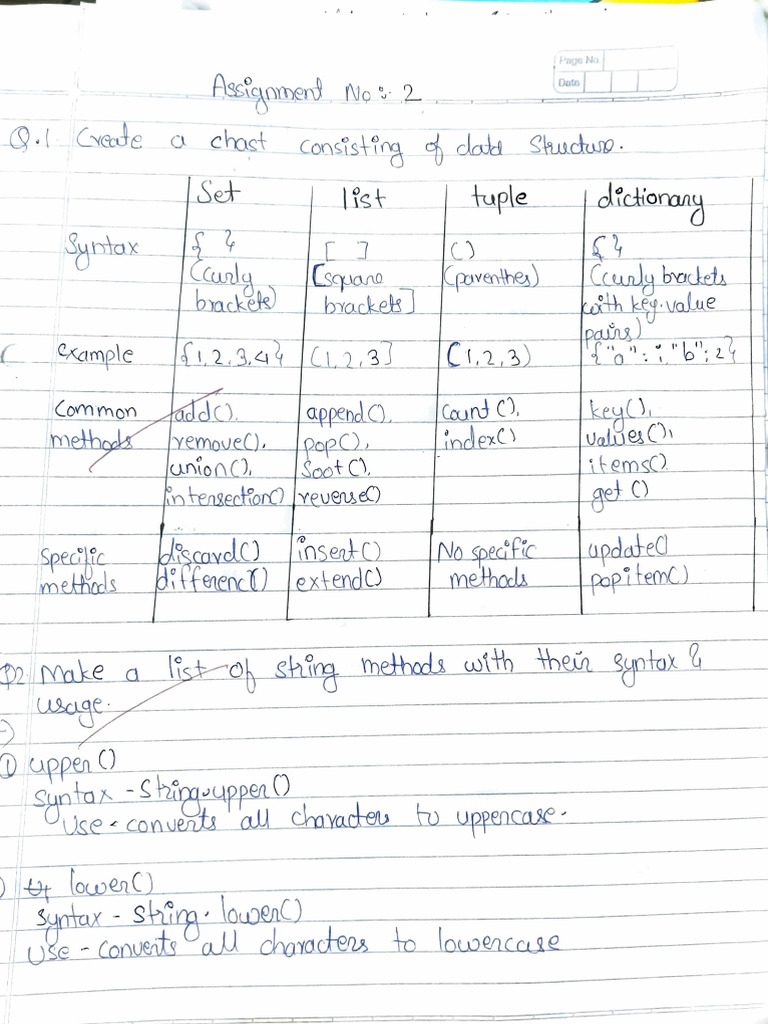 Page No
Date
Assignment No:- 2
Q.1 Create a chart consisting of data structure.
Set list tuple dictionary
Syntax { } [ ] () { }
(curly [square (parenthes) (curly brackets
brackets) brackets] with key-value
pairs)
example {1,2,3,4} (1,2,3] (1,2,3) {"a":1,"b":2}
Common add(), append(), count(), key(),
methods remove(), pop(), index() values(),
union(), Soot(), items()
intersection() reverse() get()
specific discard() insert() No specific update()
methods difference() extend() methods popitem()
Q2 Make a list of string methods with their syntax &
usage.
① upper()
syntax - String.upper()
Use - converts all characters to uppercase.
lower()
syntax - string.lower()
Use - converts all characters to lowercase